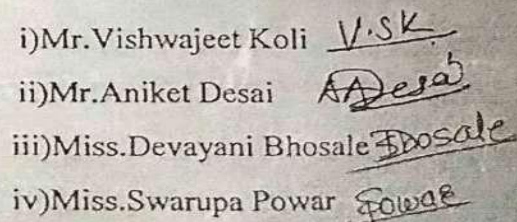 i)Mr.Vishwajeet Koli V.SK
ii)Mr.Aniket Desai AADesai
iii)Miss.Devayani Bhosale Bhosale
iv)Miss.Swarupa Powar Powar